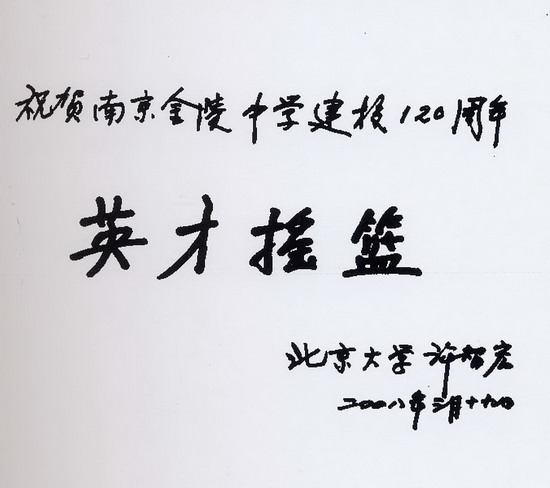 祝贺南京金陵中学建校120周年
英才摇篮
北京大学 许智宏
二〇〇八年三月十九日